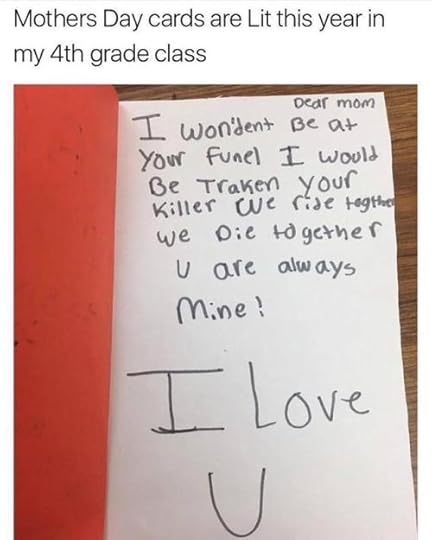 Mothers Day cards are Lit this year in
my 4th grade class
Dear mom
I won'dent Be at
Your Funel I would
Be Traken your
Killer we ride togther
we Die together
U are always
Mine!
I Love
U